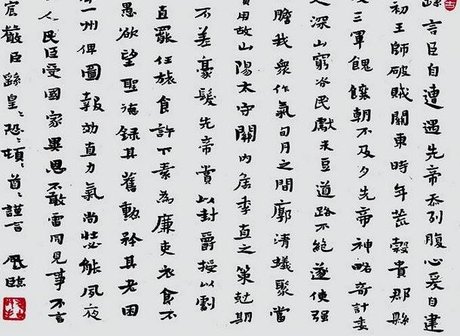 繇言臣自遭遇先帝忝列腹心爰自建
初王師破賊關東時年荒穀貴郡縣
三軍餽饟朝不及夕先帝神略奇計委
人深山窮谷民獻米豆道路不絕遂使強
膽我眾作氣旬月之間廓清蟻聚當
實用故山陽太守關內侯季直之策尅期
不差豪髮先帝賞以封爵授以劇
直罷任旅食許下素為廉吏衣食不
愚欲望聖德錄其舊勳矜其老困
一州俾圖報効直力氣尚壯必能夙夜
人民臣受國家異恩不敢雷同見事不言
宸嚴臣繇皇〻恐〻頓〻首〻謹言 臨